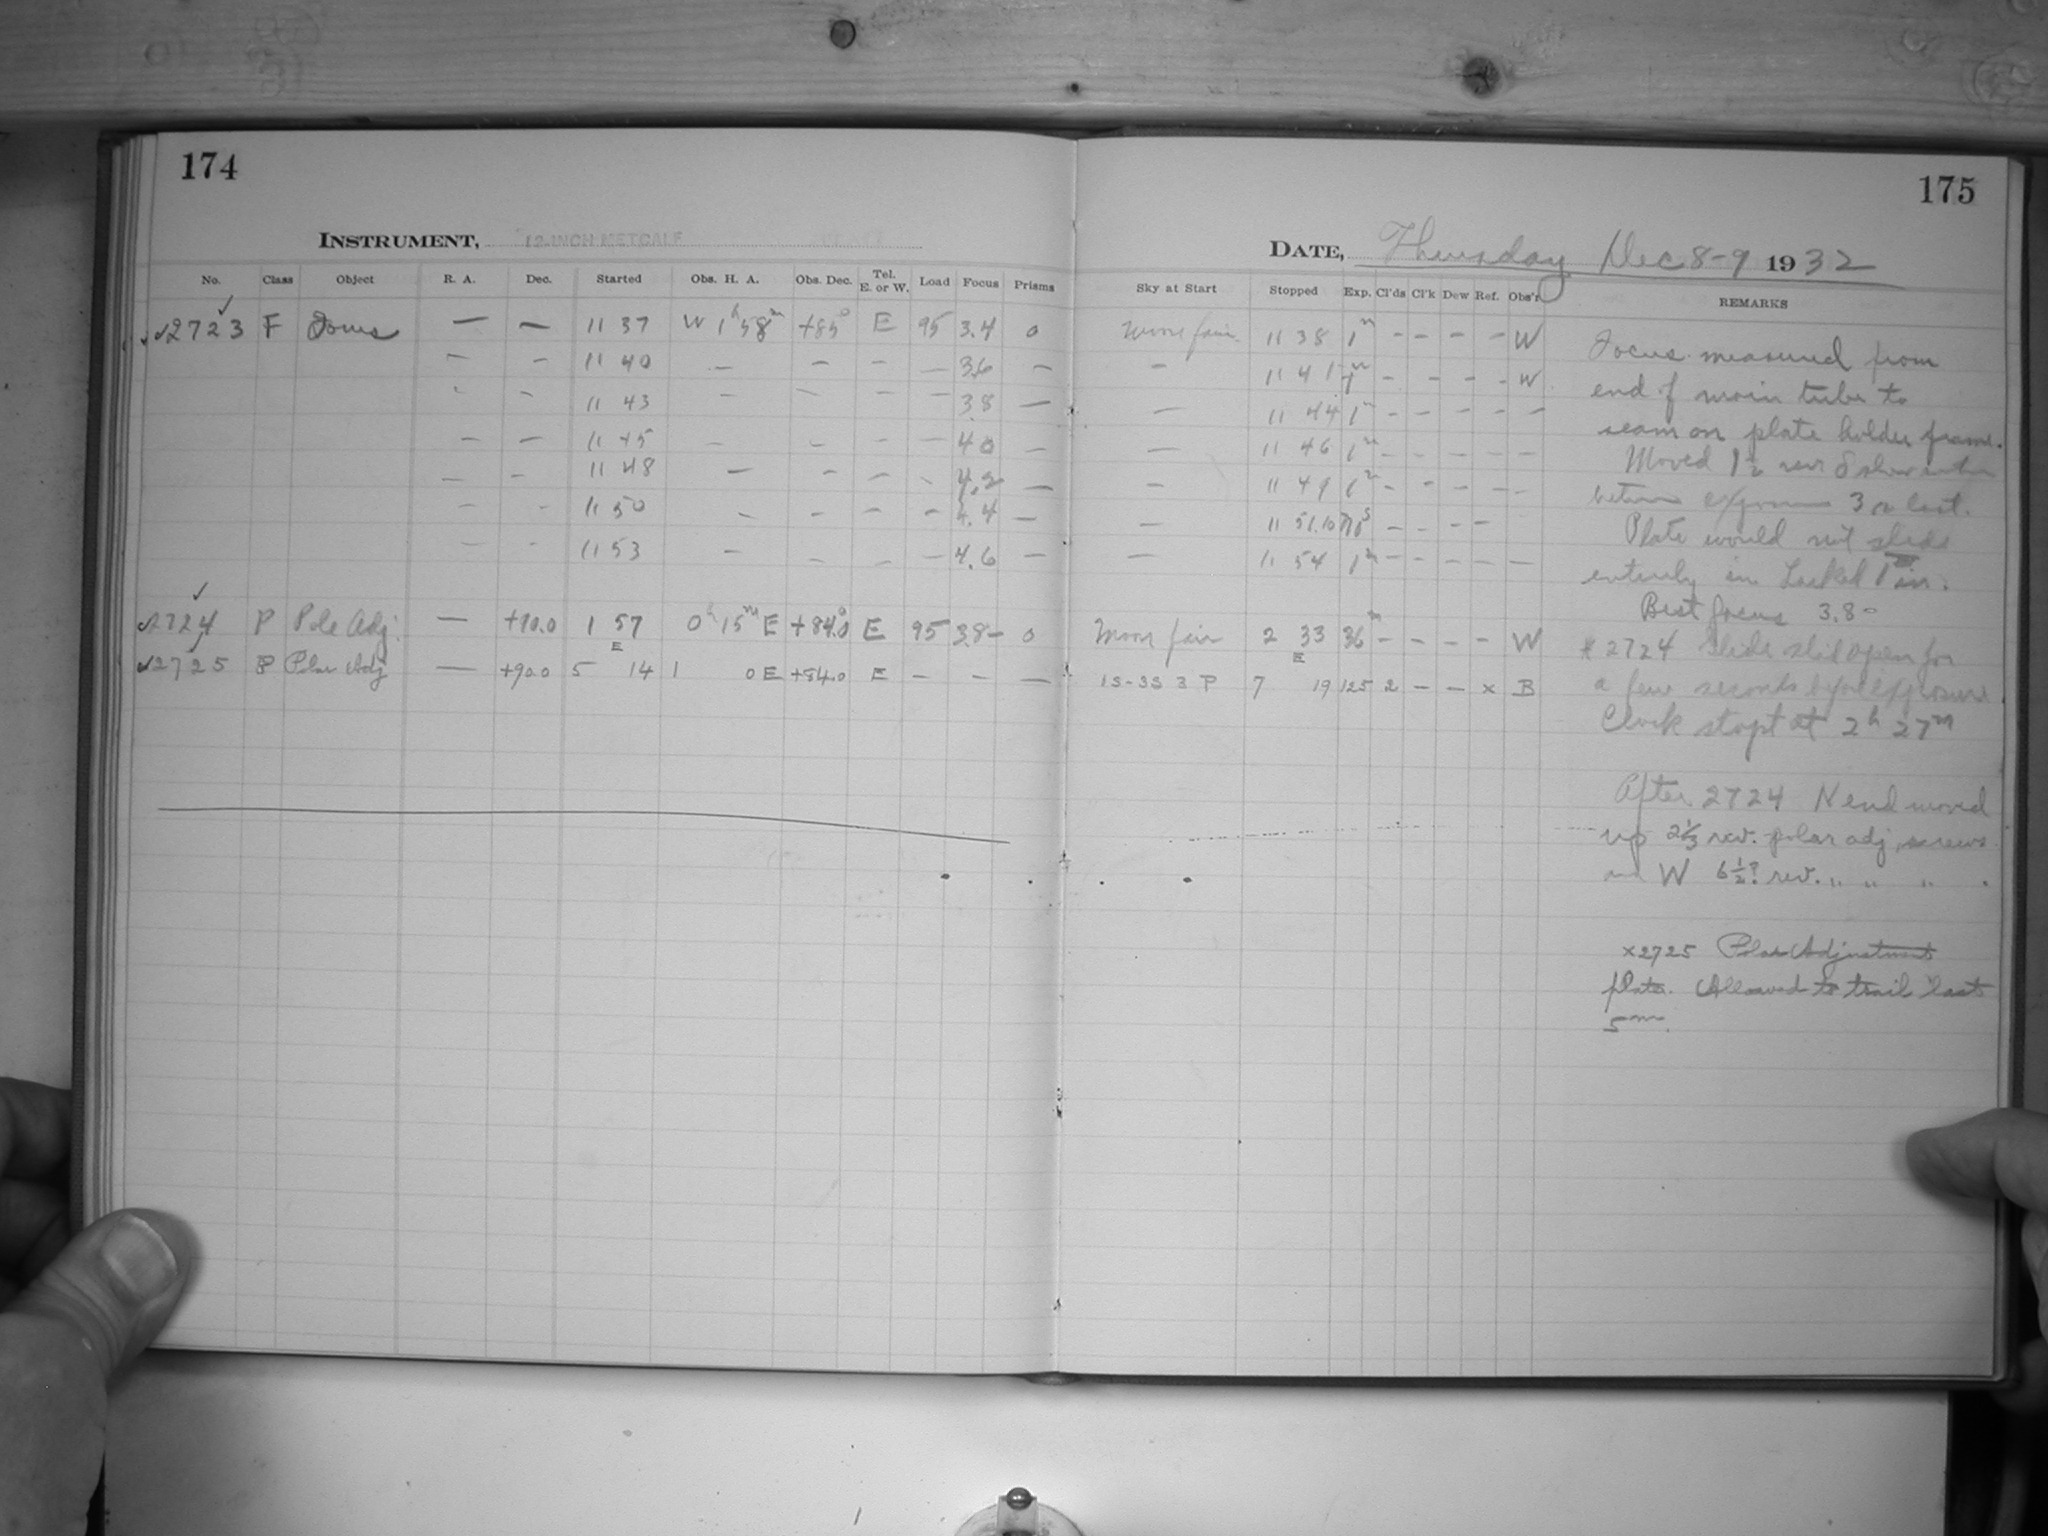 174
175
INSTRUMENT, 12-INCH METCALF
DATE, Thursday Dec 8-9 1932
No. Class Object R. A. Dec. Started Obs. H. A. Obs. Dec. Tel. E. or W. Load Focus Prisms Sky at Start Stopped Exp. Cl'ds Cl'k Dew Ref. Obs'r REMARKS
✓2723 F Focus — — 11 37 W 1h 58m +85° E 95 3.4 0 Moon fair 11 38 1m - - - - W
- - 11 40 - - - - 3.6 - - 11 41 1m - - - - W
- - 11 43 - - - - 3.8 - - 11 44 1m - - - - -
- - 11 45 - - - - 4.0 - - 11 46 1m - - - - -
- - 11 48 - - - - 4.2 - - 11 49 1m - - - - -
- - 11 50 - - - - 4.4 - - 11 51.10 70s - - - -
- - 11 53 - - - - 4.6 - - 11 54 1m - - - - -
✓2724 P Pole Adj. — +90.0 1 57 0h 15m E +84.0° E 95 3.8- 0 Moon fair 2 33 36m - - - - W
E E
✓2725 P Polar Adj — +90.0 5 14 1 0 E +84.0 E - - - 1S-3S 3 P 7 19 125 2 - - x B
Focus measured from
end of main tube to
seam on plate holder frame.
Moved 1½ rev
between exposures 3 on last.
Plate would not slide
entirely in Lacked 1 in.
Best focus 3.8-
# 2724 Slide slid open for
a few seconds before exposure
Clock stopt at 2h 27m
After 2724 N end moved
up 2⅓ rev. polar adj. screws
and W 6½? rev. " " " .
x2725 Polar Adjustment
plate. Allowed to trail last
5m.